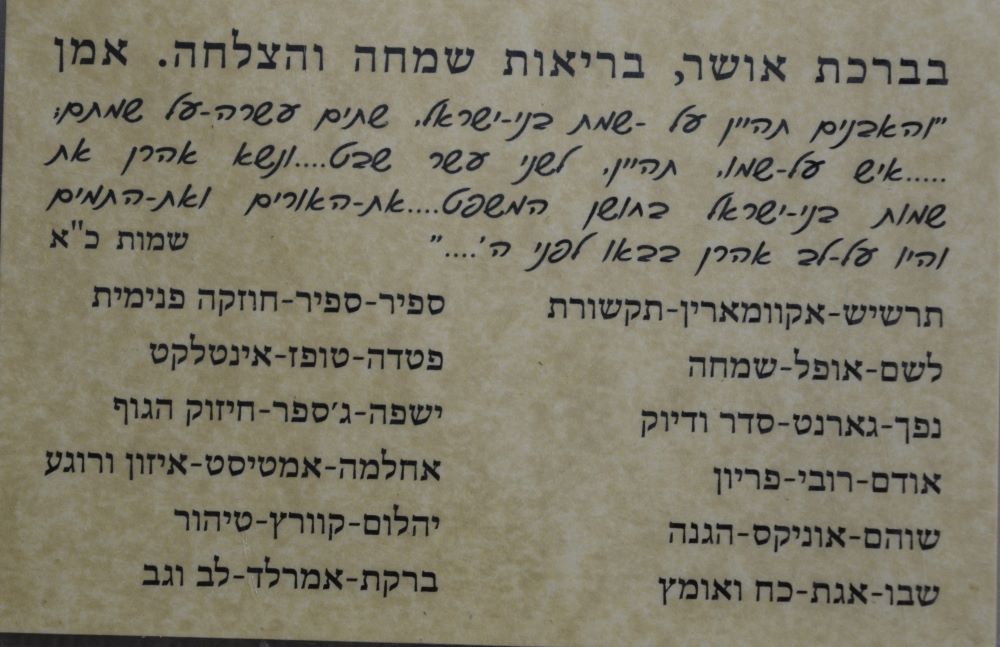 בברכת אושר, בריאות שמחה והצלחה. אמן
"והאבנים תהיין על -שמת בני-ישראל, שתים עשרה-על שמתם;
.....איש על-שמו, תהיין, לשני עשר שבט....ונשא אהרן את
שמות בני-ישראל בחושן המשפט....את-האורים ואת-התמים
והיו על-לב אהרן בבאו לפני ה'...."
שמות כ"א
תרשיש-אקוומארין-תקשורת
לשם-אופל-שמחה
נפך-גארנט-סדר ודיוק
אודם-רובי-פריון
שוהם-אוניקס-הגנה
שבו-אגת-כח ואומץ
ספיר-ספיר-חוזקה פנימית
פטדה-טופז-אינטלקט
ישפה-ג'ספר-חיזוק הגוף
אחלמה-אמטיסט-איזון ורוגע
יהלום-קוורץ-טיהור
ברקת-אמרלד-לב וגב